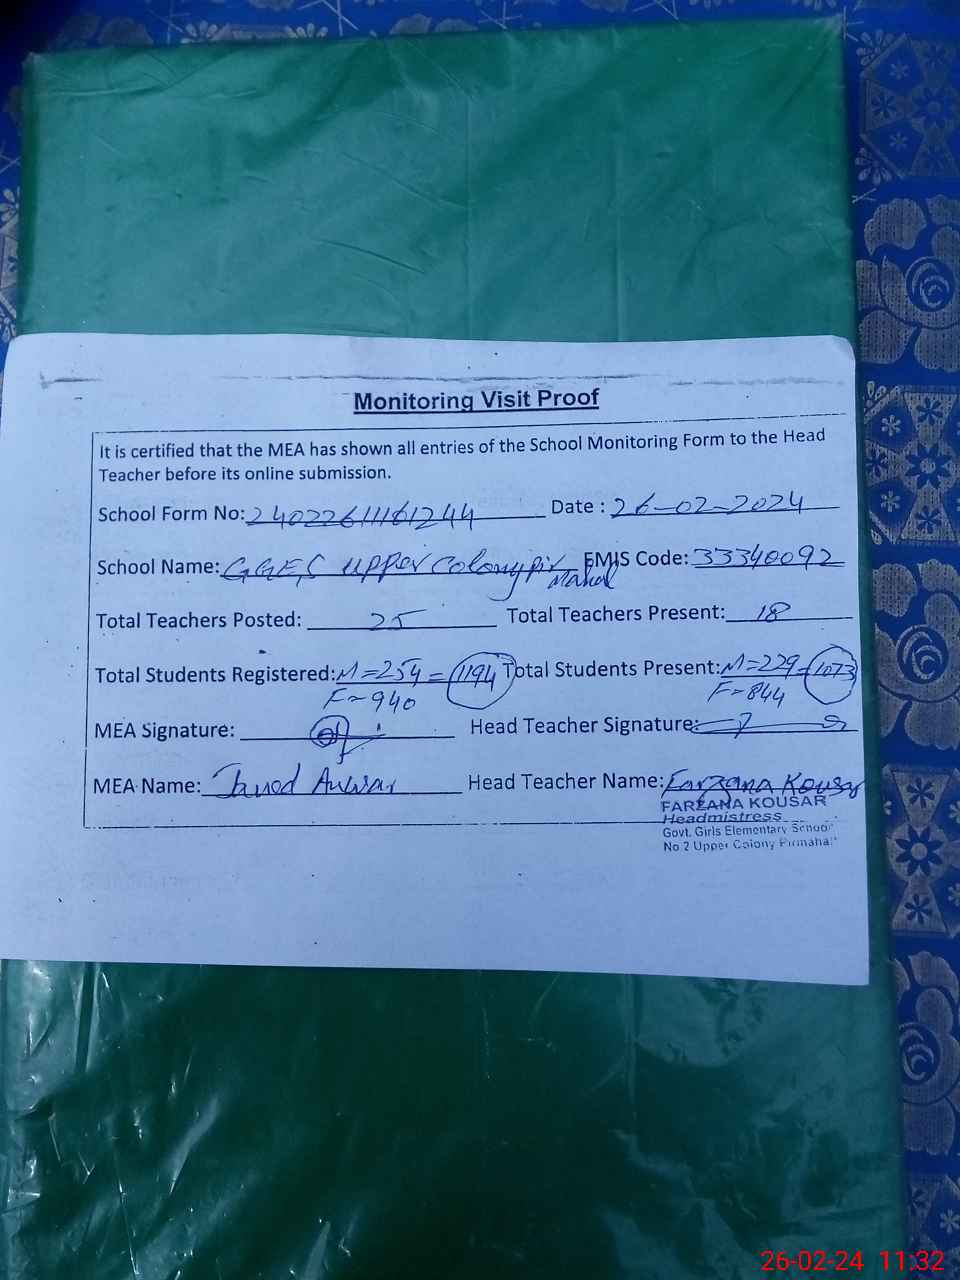 Monitoring Visit Proof
It is certified that the MEA has shown all entries of the School Monitoring Form to the Head
Teacher before its online submission.
School Form No: 24022611161244 Date : 26-02-2024
School Name: GGES upper colony pir Mahal EMIS Code: 33340092
Total Teachers Posted: 25 Total Teachers Present: 18
Total Students Registered: M=254 = 1194 Total Students Present: M=229 = 1073
F=940 F=844
MEA Signature: Head Teacher Signature:
MEA Name: Javed Anwar Head Teacher Name: Farzana Kousar
FARZANA KOUSAR
Headmistress
Govt. Girls Elementary School
No.2 Upper Colony Pirmahal
26-02-24 11:32